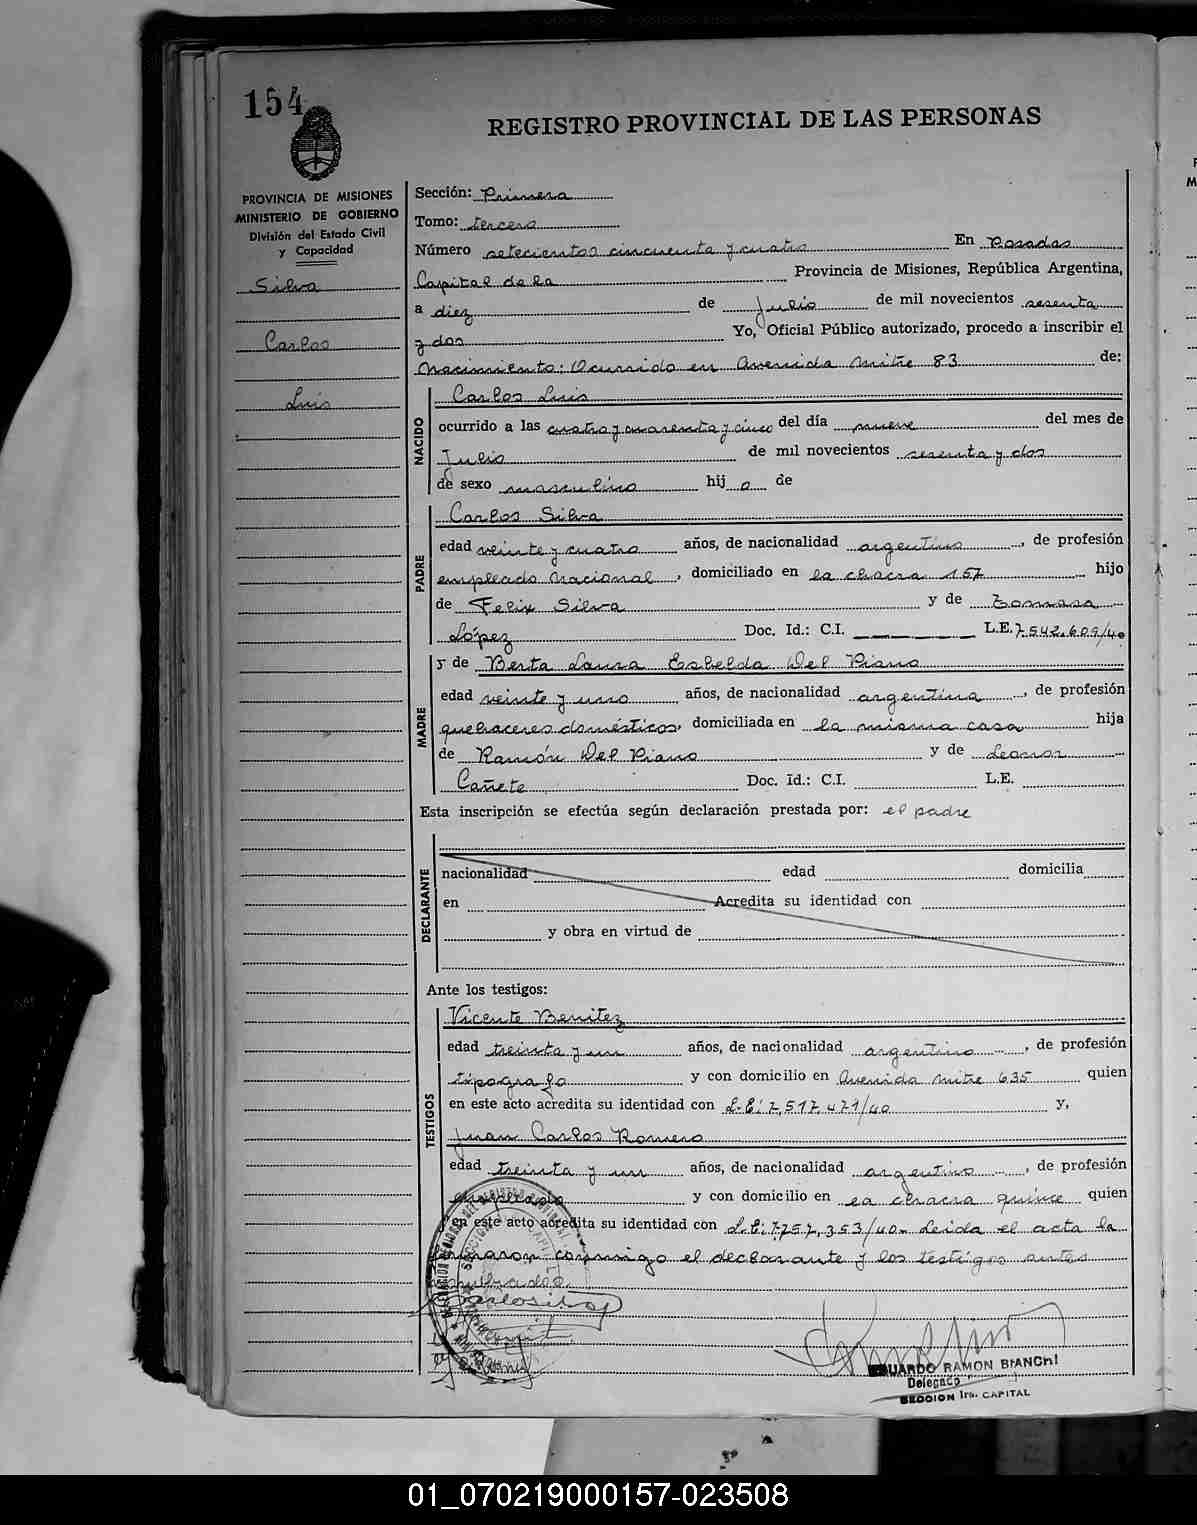 154
REGISTRO PROVINCIAL DE LAS PERSONAS
PROVINCIA DE MISIONES
MINISTERIO DE GOBIERNO
División del Estado Civil
y Capacidad
Silva
Carlos
Luis
Sección: Primera
Tomo: tercero
Número setecientos cincuenta y cuatro En Posadas
Capital de la Provincia de Misiones, República Argentina,
a diez de Julio de mil novecientos sesenta
y dos Yo, Oficial Público autorizado, procedo a inscribir el
Nacimiento: Ocurrido en Avenida Mitre 83 de:
NACIDO
Carlos Luis
ocurrido a las cuatro y cuarenta y cinco del día nueve del mes de
Julio de mil novecientos sesenta y dos
de sexo masculino hijo de
PADRE
Carlos Silva
edad veinte y cuatro años, de nacionalidad argentino, de profesión
empleado Nacional, domiciliado en la chacra 157 hijo
de Felix Silva y de Tomasa
López Doc. Id.: C.I. L.E. 7.542.609/40
MADRE
y de Berta Laura Esbelda Del Piano
edad veinte y uno años, de nacionalidad argentina, de profesión
quehaceres domésticos, domiciliada en la misma casa hija
de Ramón Del Piano y de Leonor
Cañete Doc. Id.: C.I. L.E.
Esta inscripción se efectúa según declaración prestada por: el padre
DECLARANTE
nacionalidad edad domicilia
en Acredita su identidad con
y obra en virtud de
Ante los testigos:
TESTIGOS
Vicente Benitez
edad treinta y un años, de nacionalidad argentino, de profesión
tipografo y con domicilio en Avenida Mitre 635 quien
en este acto acredita su identidad con L.E: 7,517,471/40 y,
Juan Carlos Romero
edad treinta y un años, de nacionalidad argentino, de profesión
empleado y con domicilio en la chacra quince quien
en este acto acredita su identidad con L.E: 7.257,353/40- Leida el acta la
firmaron conmigo el declarante y los testigos antes
nombrados.
EDUARDO RAMON BIANCHI
Delegado
SECCION 1ra. CAPITAL
01_070219000157-023508